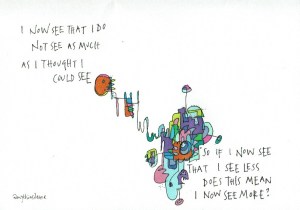 I NOW SEE THAT I DO
NOT SEE AS MUCH
AS I THOUGHT I
COULD SEE
SO IF I NOW SEE
THAT I SEE LESS
DOES THIS MEAN
I NOW SEE MORE?